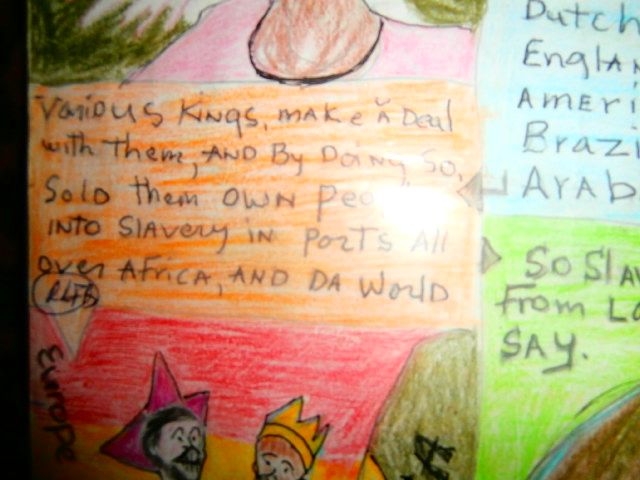 Various Kings, make a Deal
with Them, AND By Doing So,
Sold them OWN
INTO Slavery IN Ports All
over AFRICA, AND DA World
Europe
Dutch
England
Ameri
Brazi
Arab
So Slav
From Lo
SAY.